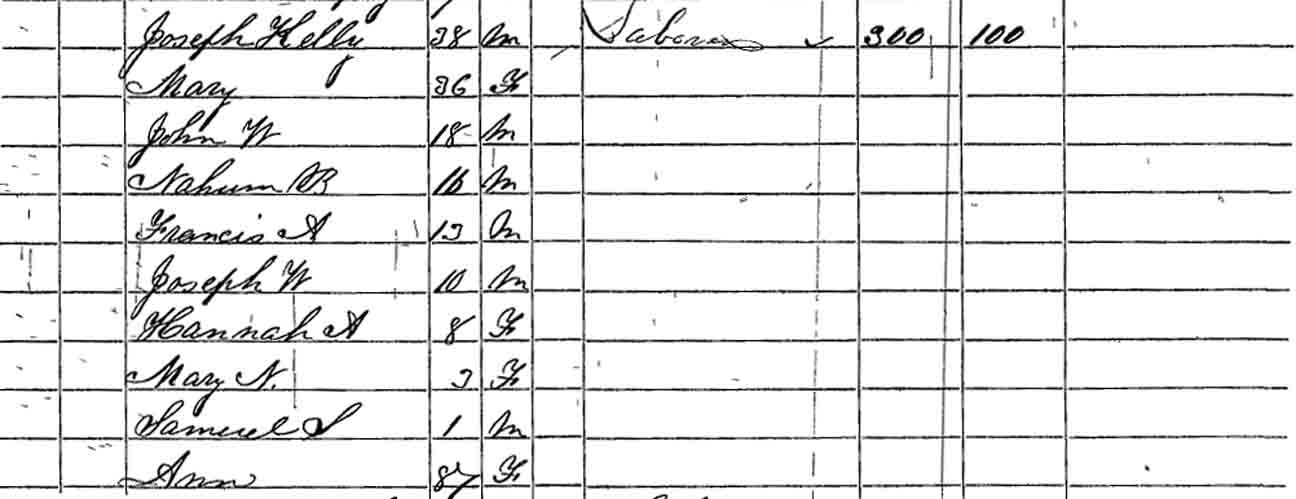 Joseph Kelly 38 M Laborer 300 100
Mary 36 F
John W 18 M
Nahum R 16 M
Francis A 13 M
Joseph W 10 M
Hannah A 8 F
Mary N. 3 F
Samuel S 1 M
Ann 87 F